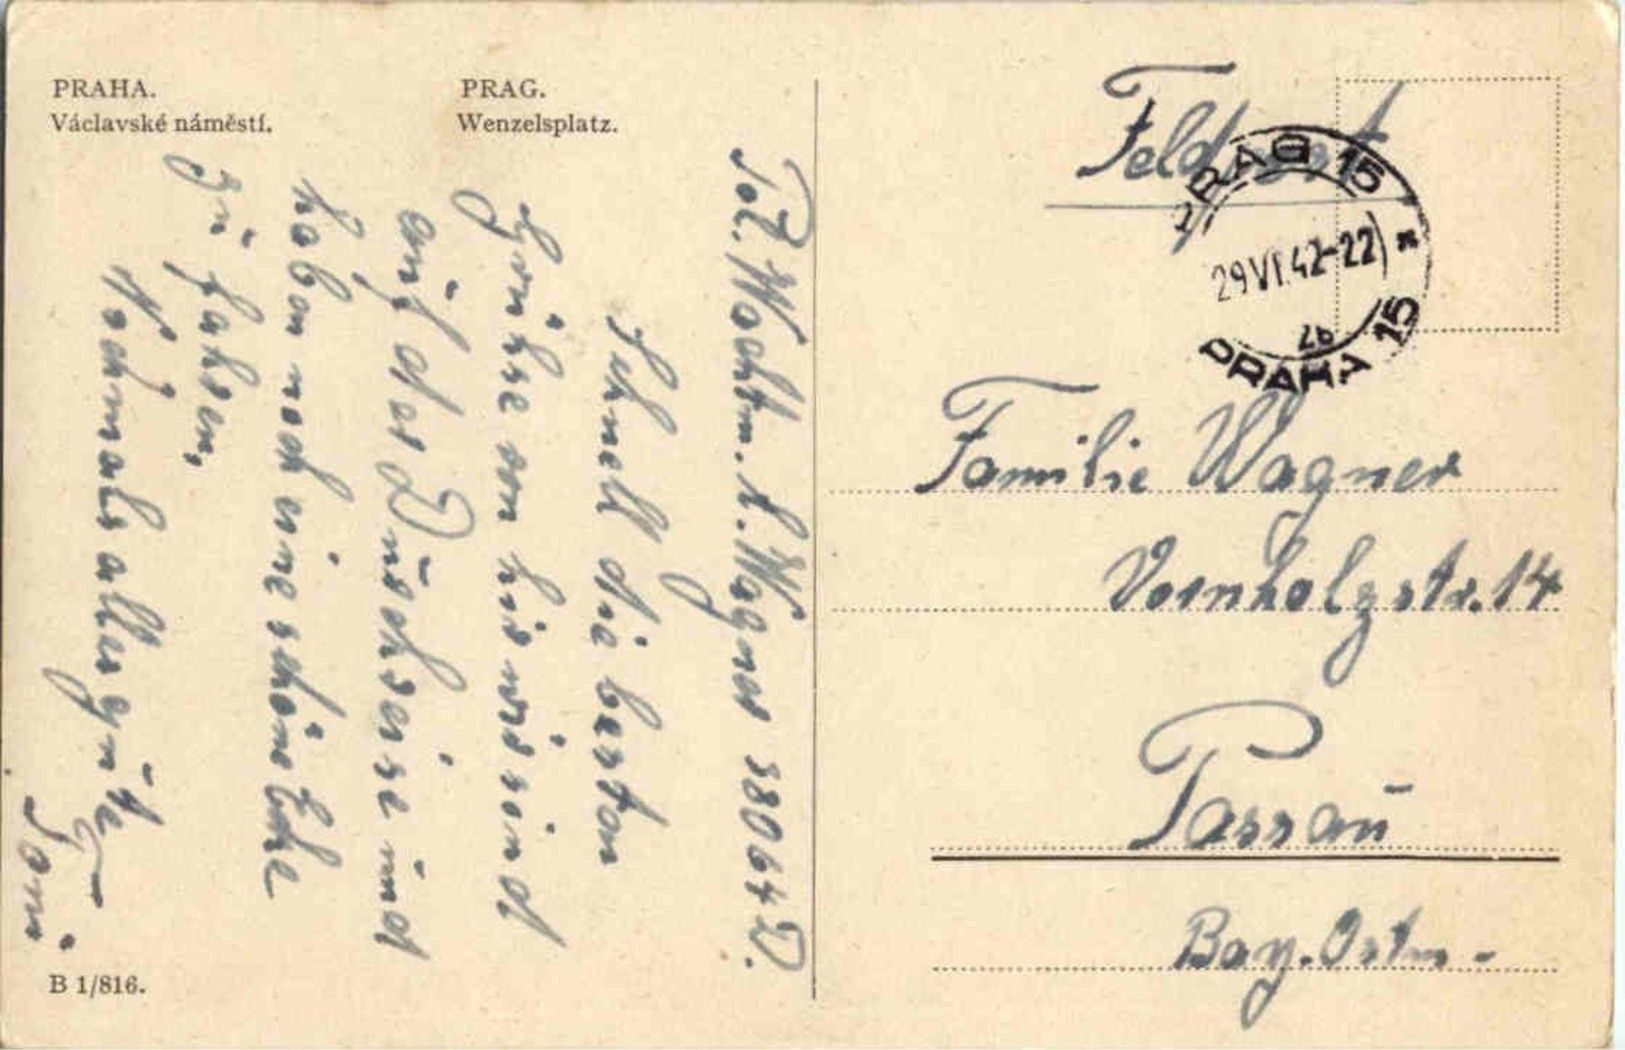 PRAHA.
Václavské náměstí.
PRAG.
Wenzelsplatz.
Feldpost
PRAG 15
29 VI. 42-22
2b
PRAHA 15
Familie Wagner
Vornholzstr. 14
Passau
Bay. Ostm-
Pol. Wachtm. L. Wagner 38064 D.
Schnell die besten
Grüße von hier wir sind
auf der Durchreise und
haben noch eine schöne Ecke
zu fahren,
Nochmals alles gute
Toni
B 1/816.